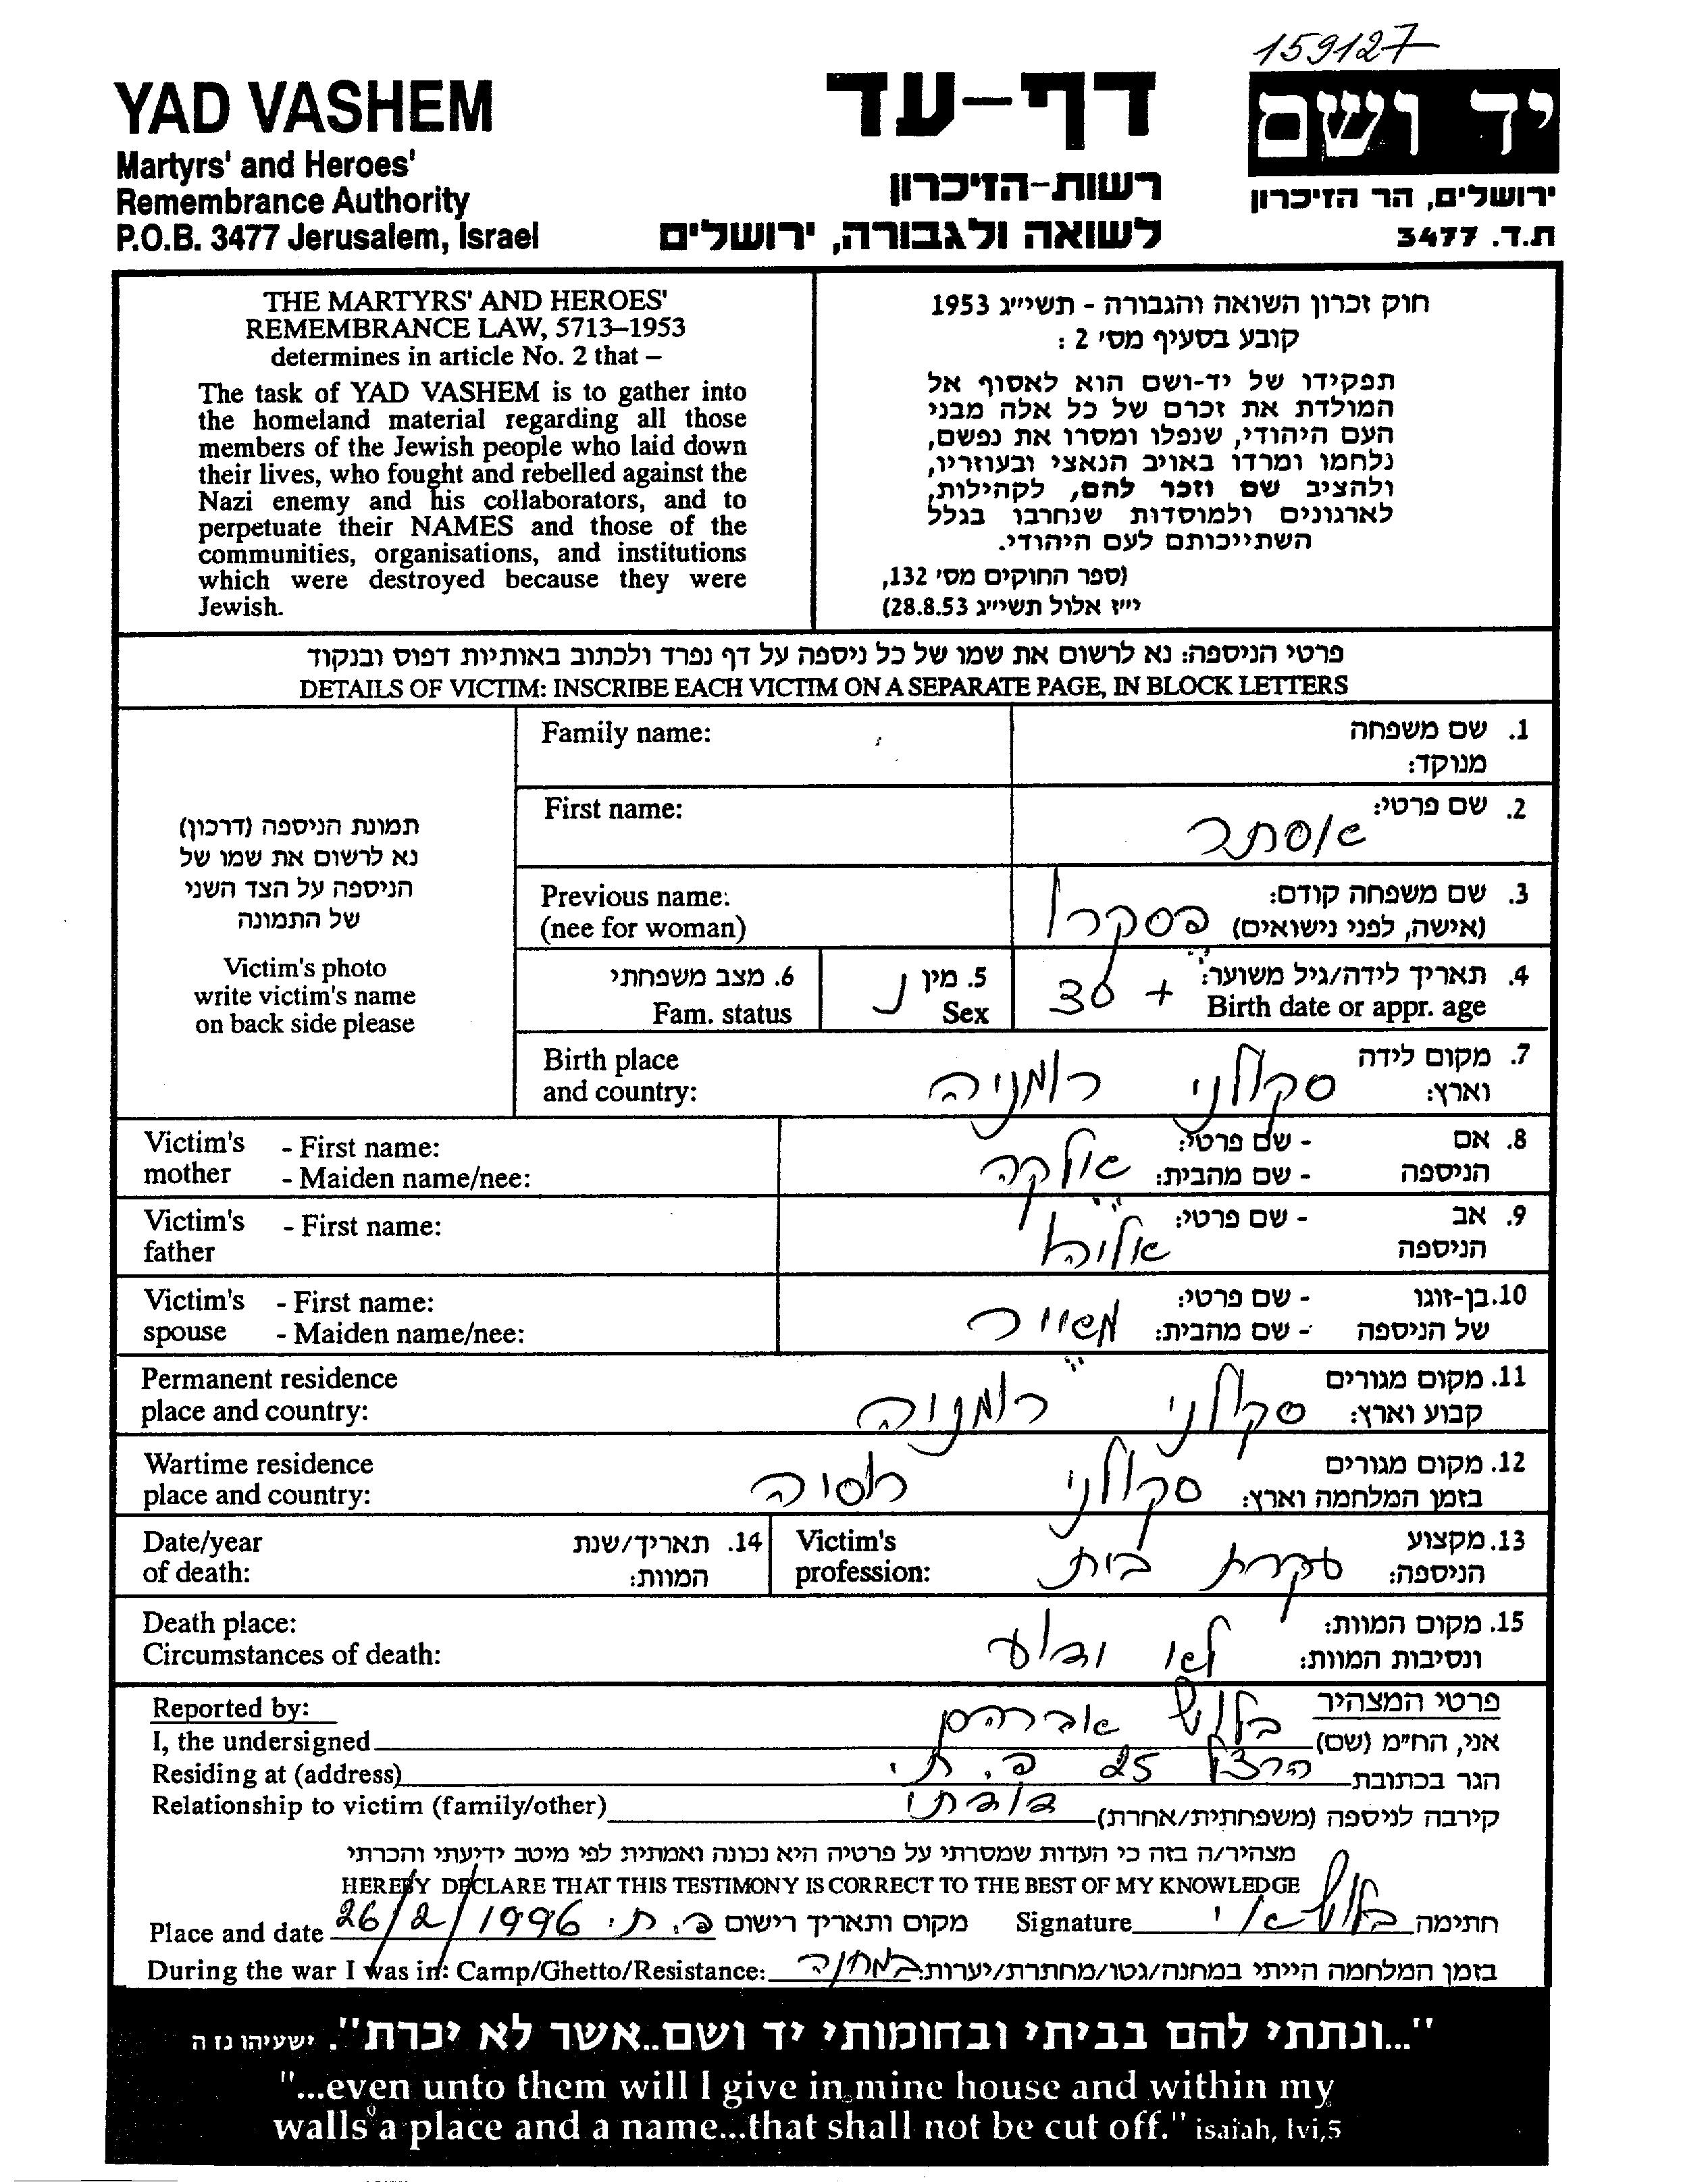 159127
YAD VASHEM
Martyrs' and Heroes'
Remembrance Authority
P.O.B. 3477 Jerusalem, Israel
דף-עד
רשות-הזיכרון
לשואה ולגבורה, ירושלים
יד ושם
ירושלים, הר הזיכרון
ת.ד. 3477
THE MARTYRS' AND HEROES'
REMEMBRANCE LAW, 5713–1953
determines in article No. 2 that –
The task of YAD VASHEM is to gather into
the homeland material regarding all those
members of the Jewish people who laid down
their lives, who fought and rebelled against the
Nazi enemy and his collaborators, and to
perpetuate their NAMES and those of the
communities, organisations, and institutions
which were destroyed because they were
Jewish.
חוק זכרון השואה והגבורה - תשי״ג 1953
קובע בסעיף מס׳ 2 :
תפקידו של יד-ושם הוא לאסוף אל
המולדת את זכרם של כל אלה מבני
העם היהודי, שנפלו ומסרו את נפשם,
נלחמו ומרדו באויב הנאצי ובעוזריו,
ולהציב שם וזכר להם, לקהילות,
לארגונים ולמוסדות שנחרבו בגלל
השתייכותם לעם היהודי.
(ספר החוקים מס׳ 132,
י״ז אלול תשי״ג 28.8.53)
פרטי הניספה: נא לרשום את שמו של כל ניספה על דף נפרד ולכתוב באותיות דפוס ובנקוד
DETAILS OF VICTIM: INSCRIBE EACH VICTIM ON A SEPARATE PAGE, IN BLOCK LETTERS
תמונת הניספה (דרכון)
נא לרשום את שמו של
הניספה על הצד השני
של התמונה
Victim's photo
write victim's name
on back side please
Family name:
1. שם משפחה
מנוקד:
First name:
2. שם פרטי:
אסתר
Previous name:
(nee for woman)
3. שם משפחה קודם:
(אישה, לפני נישואים) פסקרו
4. תאריך לידה/גיל משוער:
Birth date or appr. age
30 +
5. מין נ
Sex
6. מצב משפחתי
Fam. status
Birth place
and country:
7. מקום לידה
וארץ: סקולני רומניה
Victim's mother
- First name:
- Maiden name/nee:
8. אם הניספה
- שם פרטי:
- שם מהבית:
Victim's father
- First name:
9. אב הניספה
- שם פרטי:
Victim's spouse
- First name:
- Maiden name/nee:
10. בן-זוגו של הניספה
- שם פרטי:
- שם מהבית: מאיר
Permanent residence
place and country:
11. מקום מגורים
קבוע וארץ: סקולני רומניה
Wartime residence
place and country:
12. מקום מגורים
בזמן המלחמה וארץ: סקולני רוסיה
Date/year
of death:
14. תאריך/שנת
המוות:
Victim's
profession:
13. מקצוע
הניספה: עקרת בית
Death place:
Circumstances of death:
15. מקום המוות:
ונסיבות המוות: לא ידוע
Reported by:
פרטי המצהיר
I, the undersigned
אני, הח״מ (שם) אברהם
Residing at (address)
הגר בכתובת הרצל 25 פ. ת.
Relationship to victim (family/other)
קירבה לניספה (משפחתית/אחרת) דודתי
מצהיר/ה בזה כי העדות שמסרתי על פרטיה היא נכונה ואמתית לפי מיטב ידיעתי והכרתי
HEREBY DECLARE THAT THIS TESTIMONY IS CORRECT TO THE BEST OF MY KNOWLEDGE
Place and date 26/2/1996 פ. ת. מקום ותאריך רישום
Signature חתימה
During the war I was in: Camp/Ghetto/Resistance:
בזמן המלחמה הייתי במחנה/גטו/מחתרת/יערות: במחנה
"...ונתתי להם בביתי ובחומותי יד ושם..אשר לא יכרת". ישעיהו נז ה
"...even unto them will I give in mine house and within my
walls a place and a name...that shall not be cut off." isaiah, lvi,5